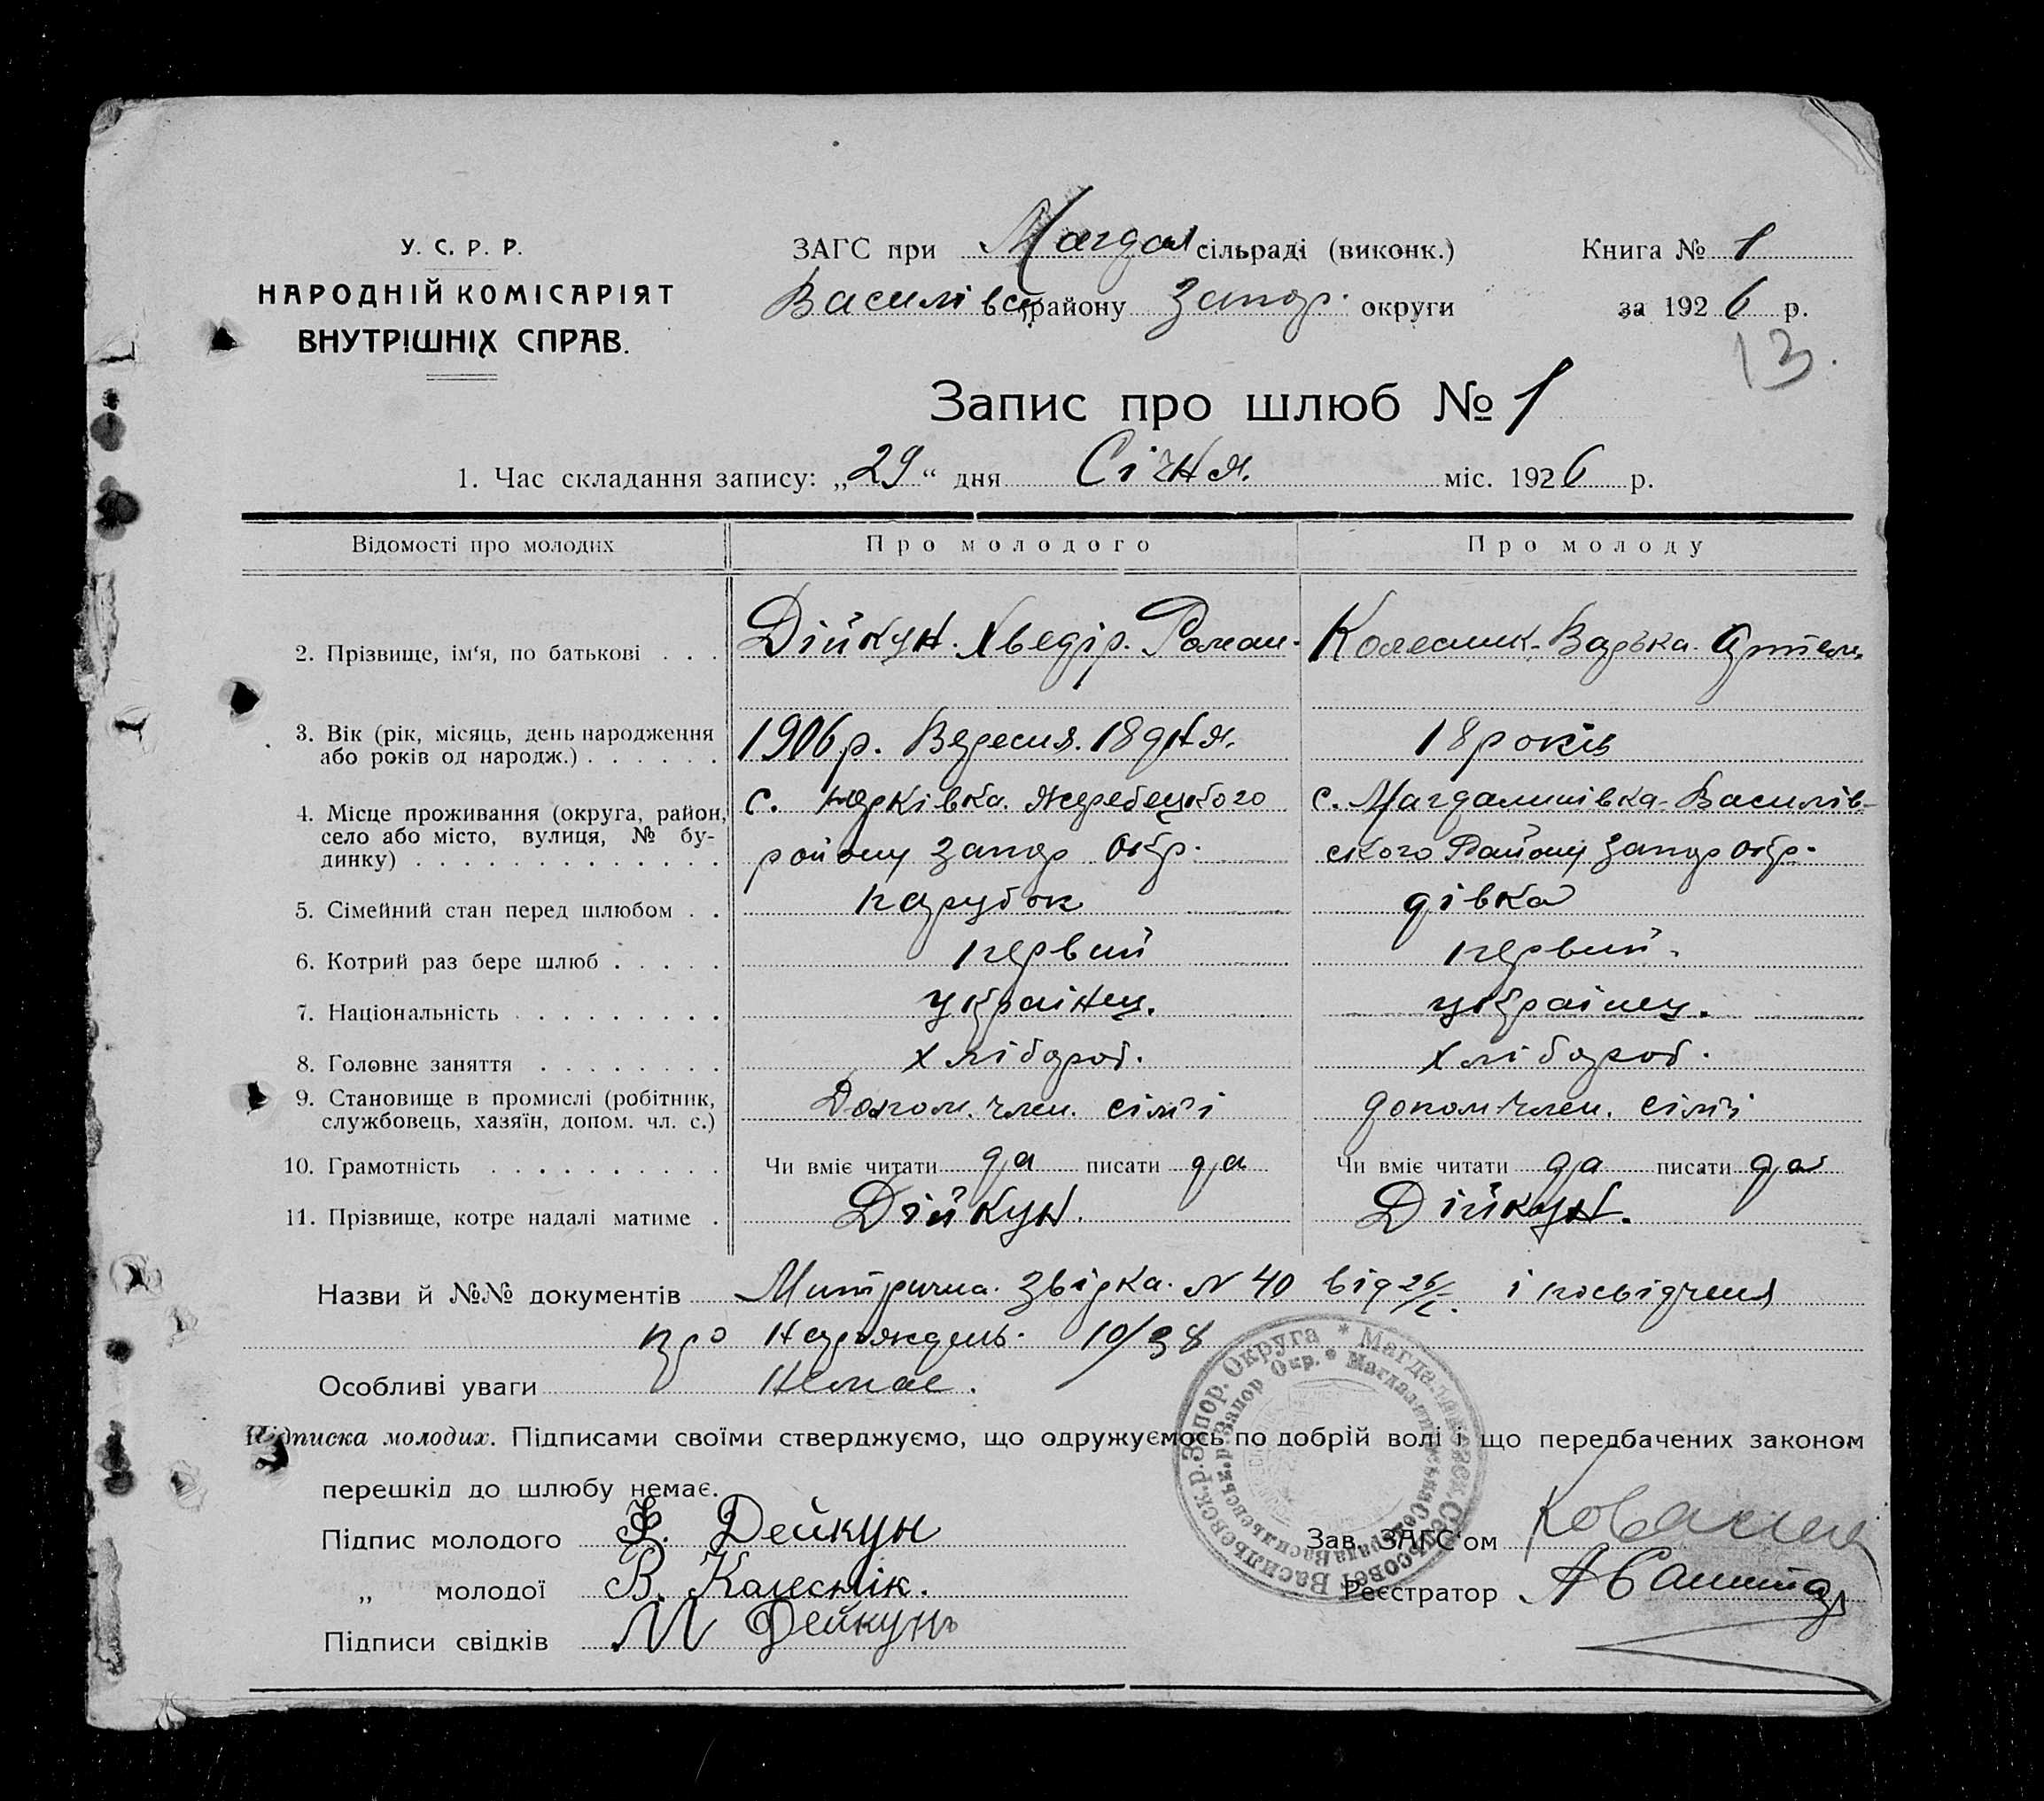 У. С. Р. Р.
НАРОДНІЙ КОМІСАРІЯТ
ВНУТРІШНІХ СПРАВ.
ЗАГС при Магдал сільраді (виконк.)
Василівск району Запор. округи
Книга № 1
за 1926 р.
13.
Запис про шлюб № 1
1. Час складання запису: „29“ дня Січня. міс. 1926 р.
Відомості про молодих Про молодого Про молоду
2. Прізвище, ім‘я, по батькові . . . Дійкун. Хведір. Роман. Колесник. Варька. Артем.
3. Вік (рік, місяць, день народження
або років од народж.) . . . . . . 1906 р. Вересня. 18 дня. 18 років
4. Місце проживання (округа, район,
село або місто, вулиця, № бу-
динку) . . . . . . . . . . . . . .
с. Жеребецького
району Запор Окр.
с. Магдалинівка Василів-
ского Району Запор Окр.
5. Сімейний стан перед шлюбом . . парубок дівка
6. Котрий раз бере шлюб . . . . . первий первий.
7. Національність . . . . . . . . . українец. украінец.
8. Головне заняття . . . . . . . . хлібороб. хлібороб.
9. Становище в промислі (робітник,
службовець, хазяїн, допом. чл. с.) Допом. член. сімʼі допом. член. сімʼі
10. Грамотність . . . . . . . . . . Чи вміє читати да писати да Чи вміє читати да писати да
11. Прізвище, котре надалі матиме . Дійкун. Дійкун.
Назви й №№ документів Митрична. N 40 від 26/I. і посвідченя
про 10/38
Особливі уваги Немае.
Підписка молодих. Підписами своїми стверджуємо, що одружуємось по добрій волі і що передбачених законом
перешкід до шлюбу немає.
Підпис молодого Ф. Дейкун
„ молодої В. Колеснік.
Підписи свідків М Дейкунъ
Зав. ЗАГС‘ом
Реєстратор